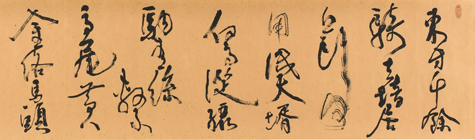 東方千餘
騎夫壻居
上頭何
用識夫壻
白馬從驪
駒青絲繫
馬尾黃
金絡馬頭